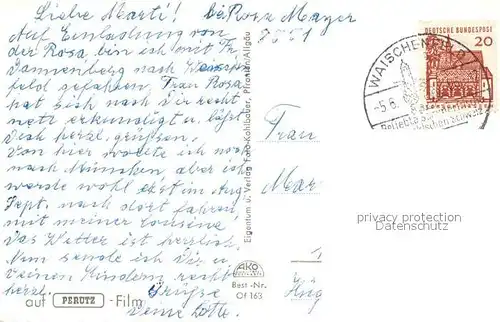 Liebe Marti! bei Rosa Mayer
Auf Einladung von
der Rosa, bin ich mit Fr.
Dannenberg nach Waischen
feld gefahren, Frau Rosa
hat sich nach Dir recht
nett erkundigt u. läßt
Dich herzl. grüßen.
Von hier wollte ich noch
nach München, aber ich
werde wohl erst im Aug
Sept. nach dort fahren,
mit meiner Cousine
Das Wetter ist herrlich.
Nun sende ich Dir u.
Deinen Kindern recht
herzl. Grüße
Deine Lotte.
auf PERUTZ-Film
Eigentum u. Verlag Foto-Kohlbauer, Pfronten/Allgäu
AKO
Best.-Nr.
Of 163
Frau
Mar
DEUTSCHE BUNDESPOST
20
WAISCHENFELD
-5.6.
privacy protection
Datenschutz